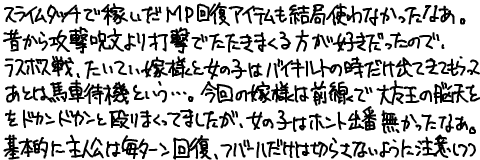 スライムタッチで稼いだMP回復アイテムも結局使わなかったなあ。
昔から攻撃呪文より打撃でたたきまくる方が好きだったので、
ラスボス戦、たいてい嫁様と女の子はバイキルトの時だけ出てきてもらって
あとは馬車待機という…。今回の嫁様は前線で大魔王の脳天を
をドカンドカンと殴りまくってましたが、女の子はホント出番無かったなあ。
基本的に主人公は毎ターン回復、フバーハだけは切らさないように注意しつつ